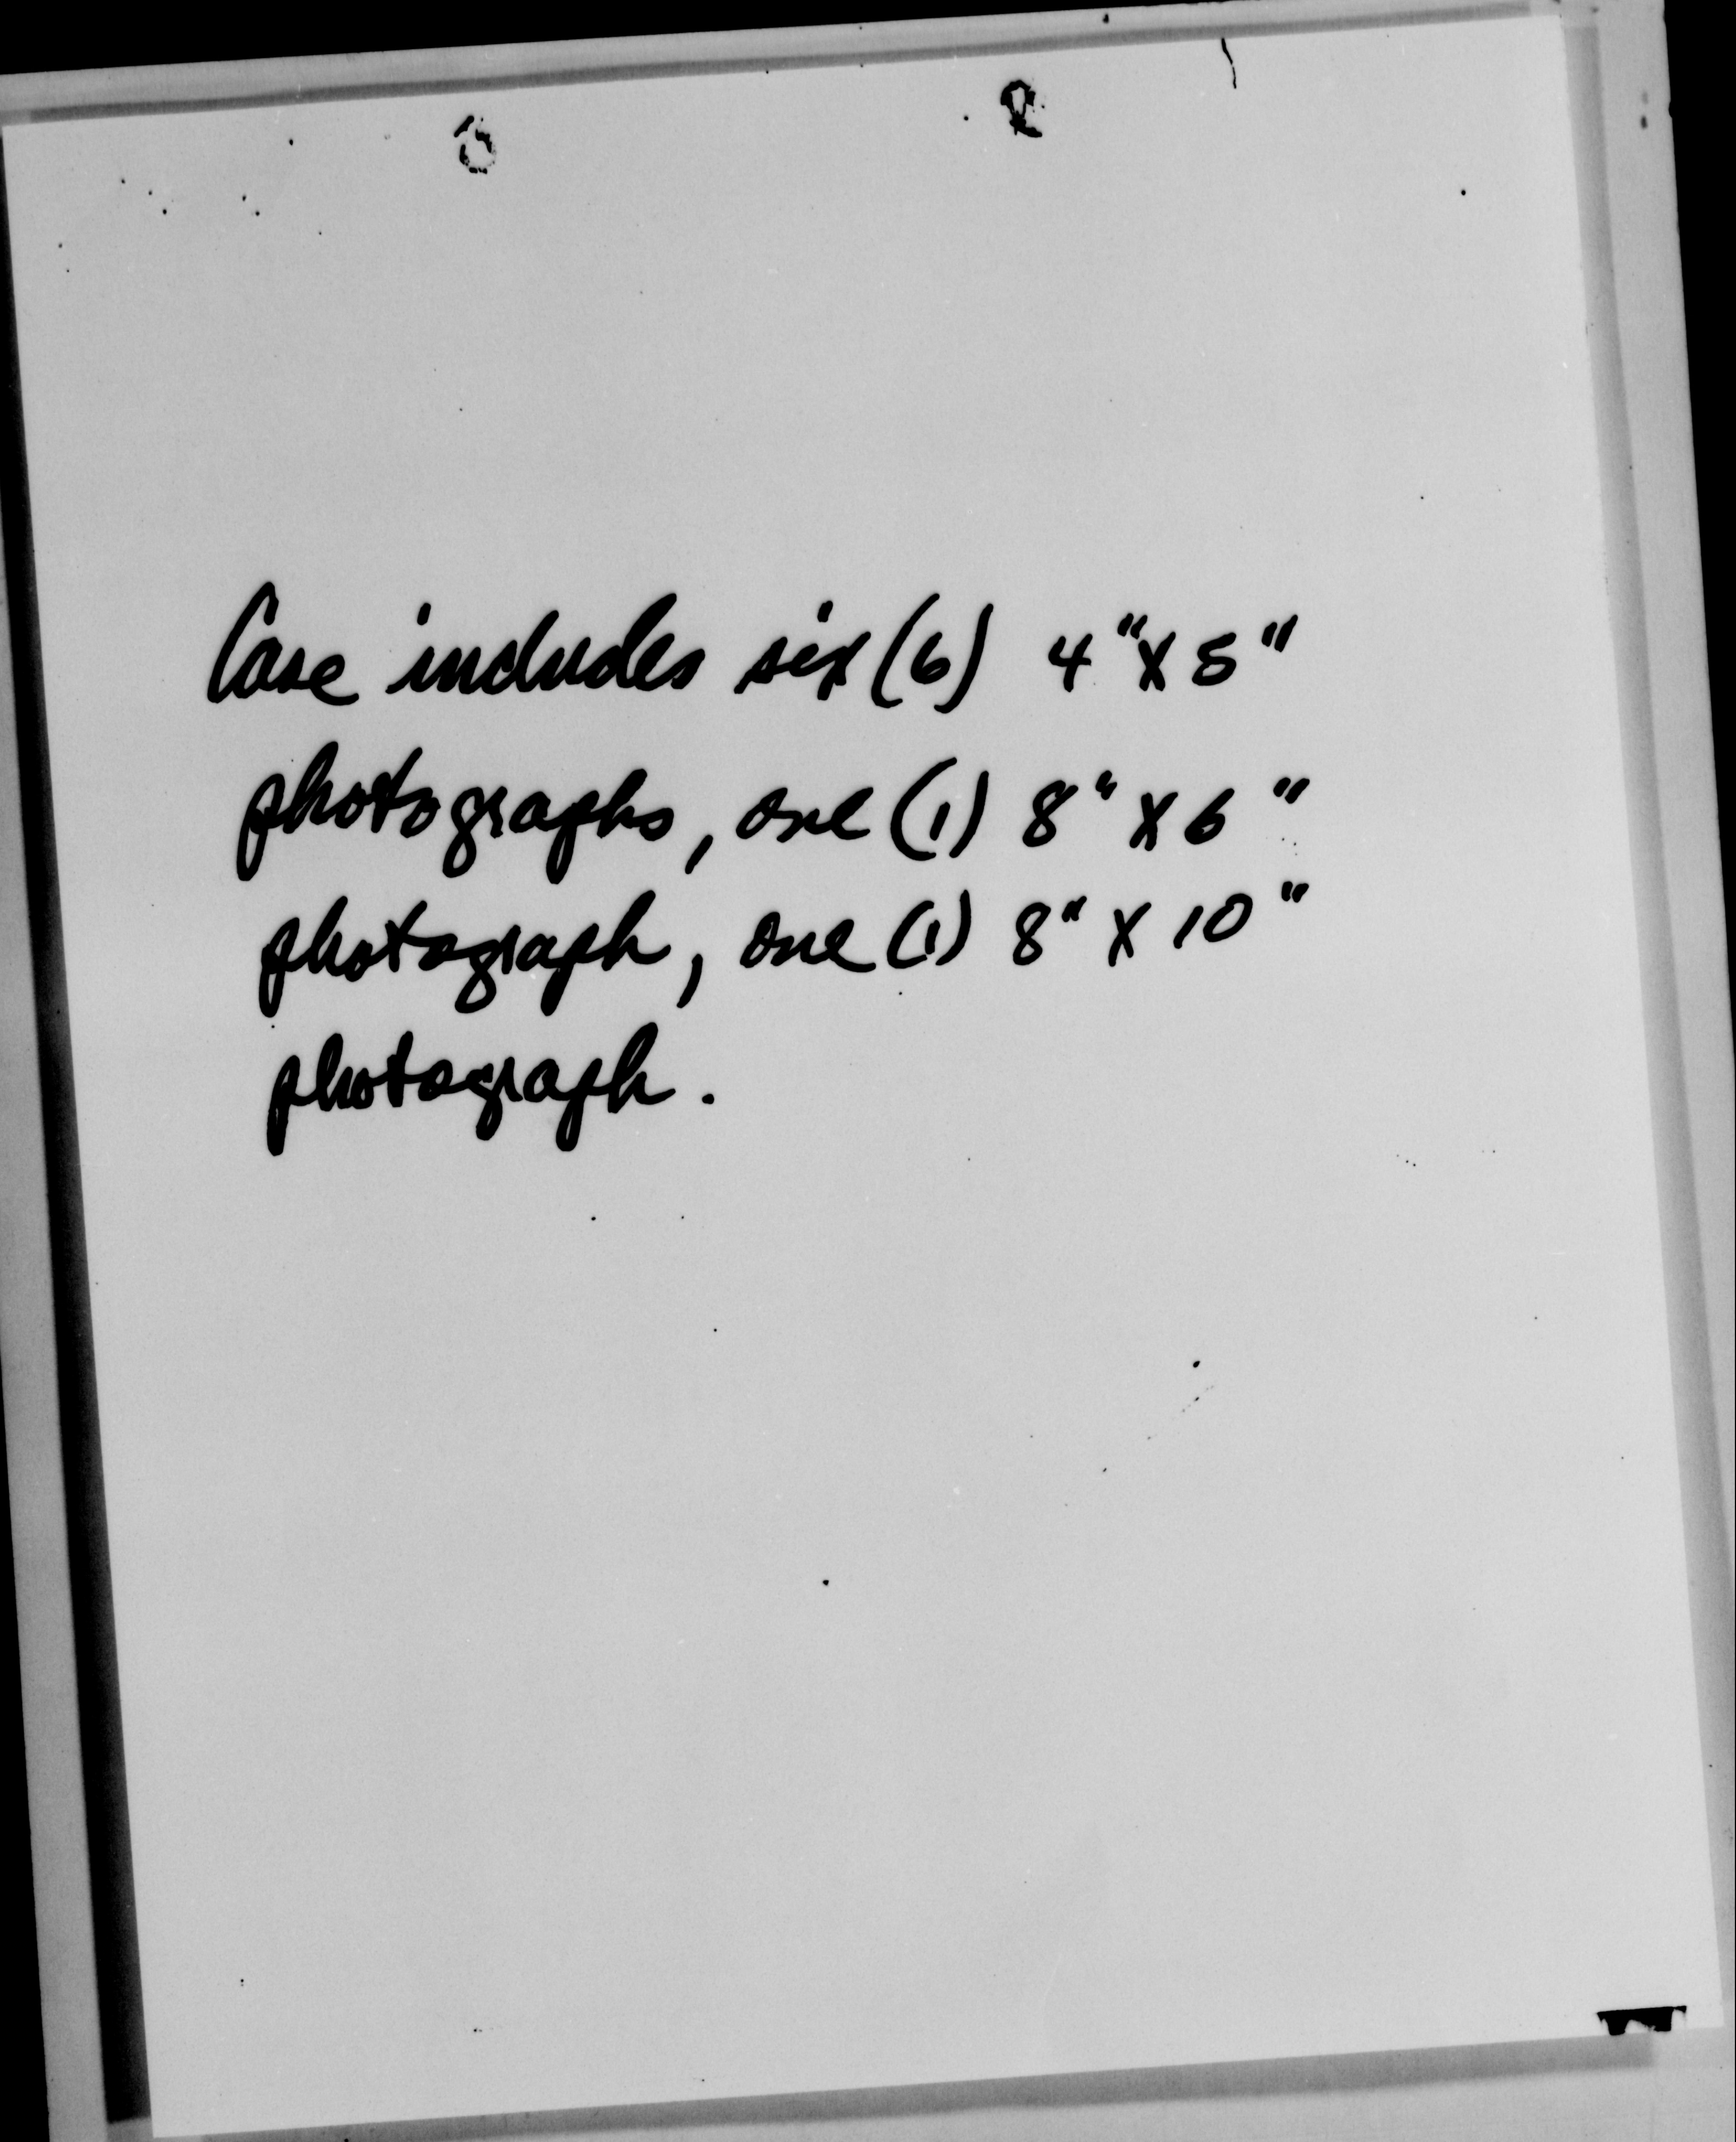 Case includes six (6) 4" X 5"
photographs, one (1) 8" X 6"
photograph, one (1) 8" X 10"
photograph.